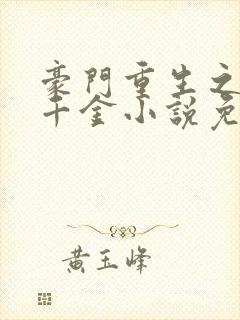 豪門重生之
千金小說免
黃玉峰